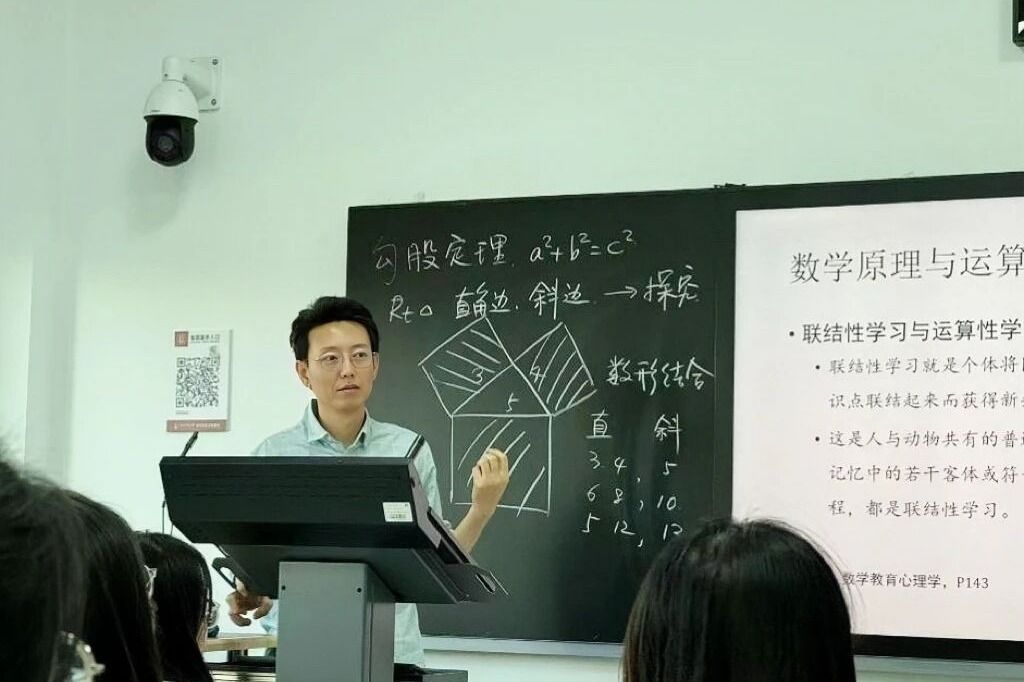 勾股定理. a²+b²=c²
Rt△ 直角边. 斜边 → 探究
3
4
5
数形结合
直 斜
3 4, 5
6 8, 10
5 12, 13
数学原理与运算
• 联结性学习与运算性学
• 联结性学习就是个体将
识点联结起来而获得新
• 这是人与动物共有的普
记忆中的若干客体或符
程，都是联结性学习。
数学教育心理学，P143